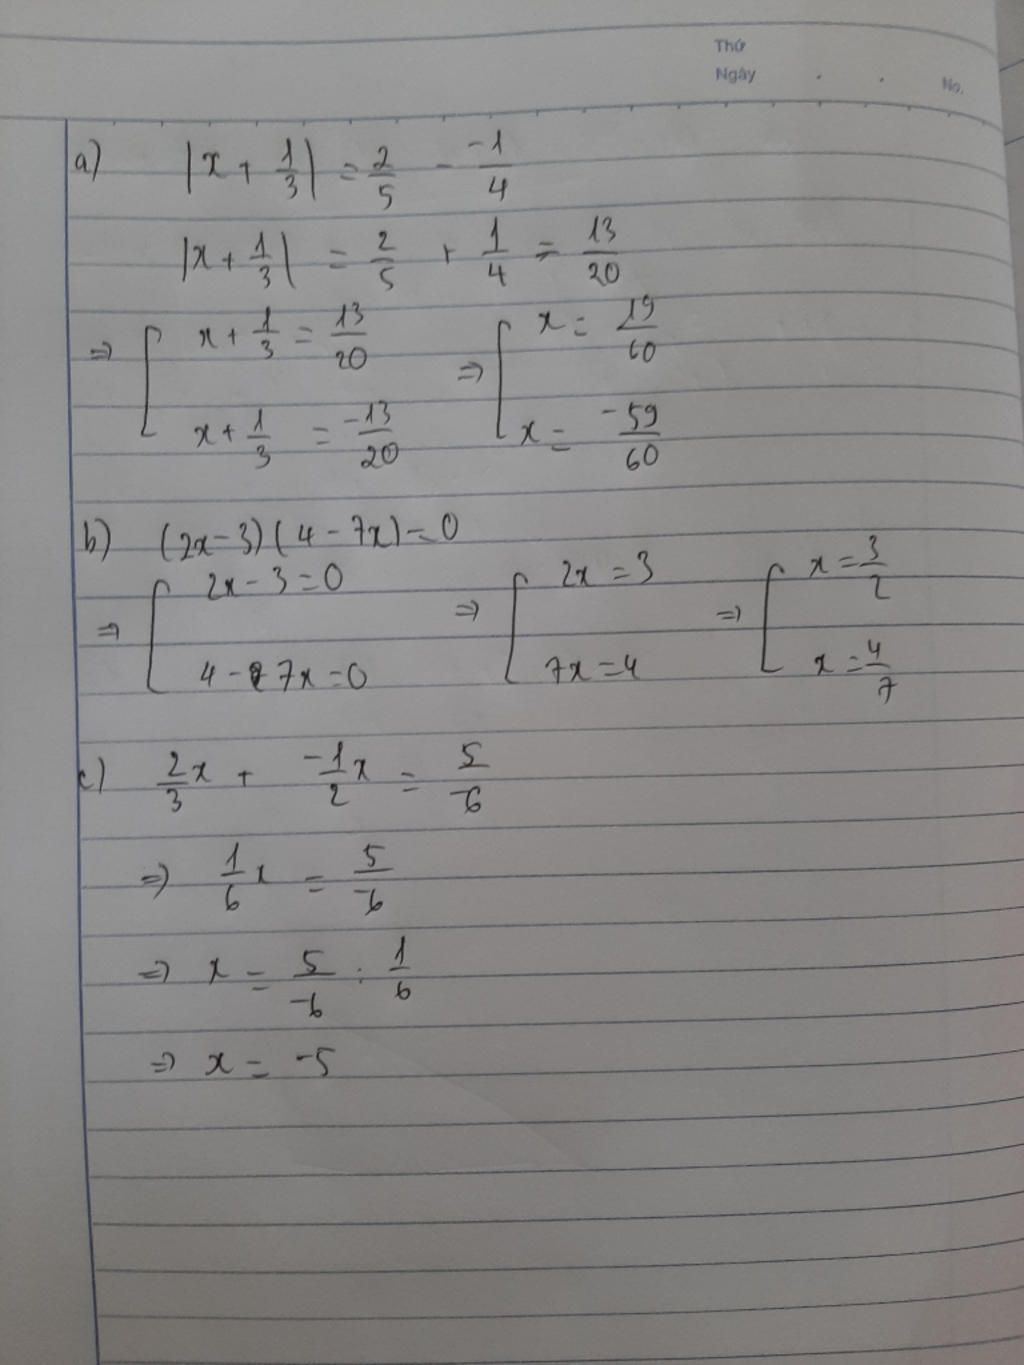 Thứ
Ngày . . No.
a) |x + 1/3| = 2/5 - -1/4
|x + 1/3| = 2/5 + 1/4 = 13/20
=> [ x + 1/3 = 13/20 => [ x = 19/60
x + 1/3 = -13/20 x = -59/60
b) (2x - 3)(4 - 7x) = 0
=> [ 2x - 3 = 0 => [ 2x = 3 => [ x = 3/2
4 - 7x = 0 7x = 4 x = 4/7
c) 2/3 x + -1/2 x = 5/-6
=> 1/6 x = 5/-6
=> x = 5/-6 : 1/6
=> x = -5